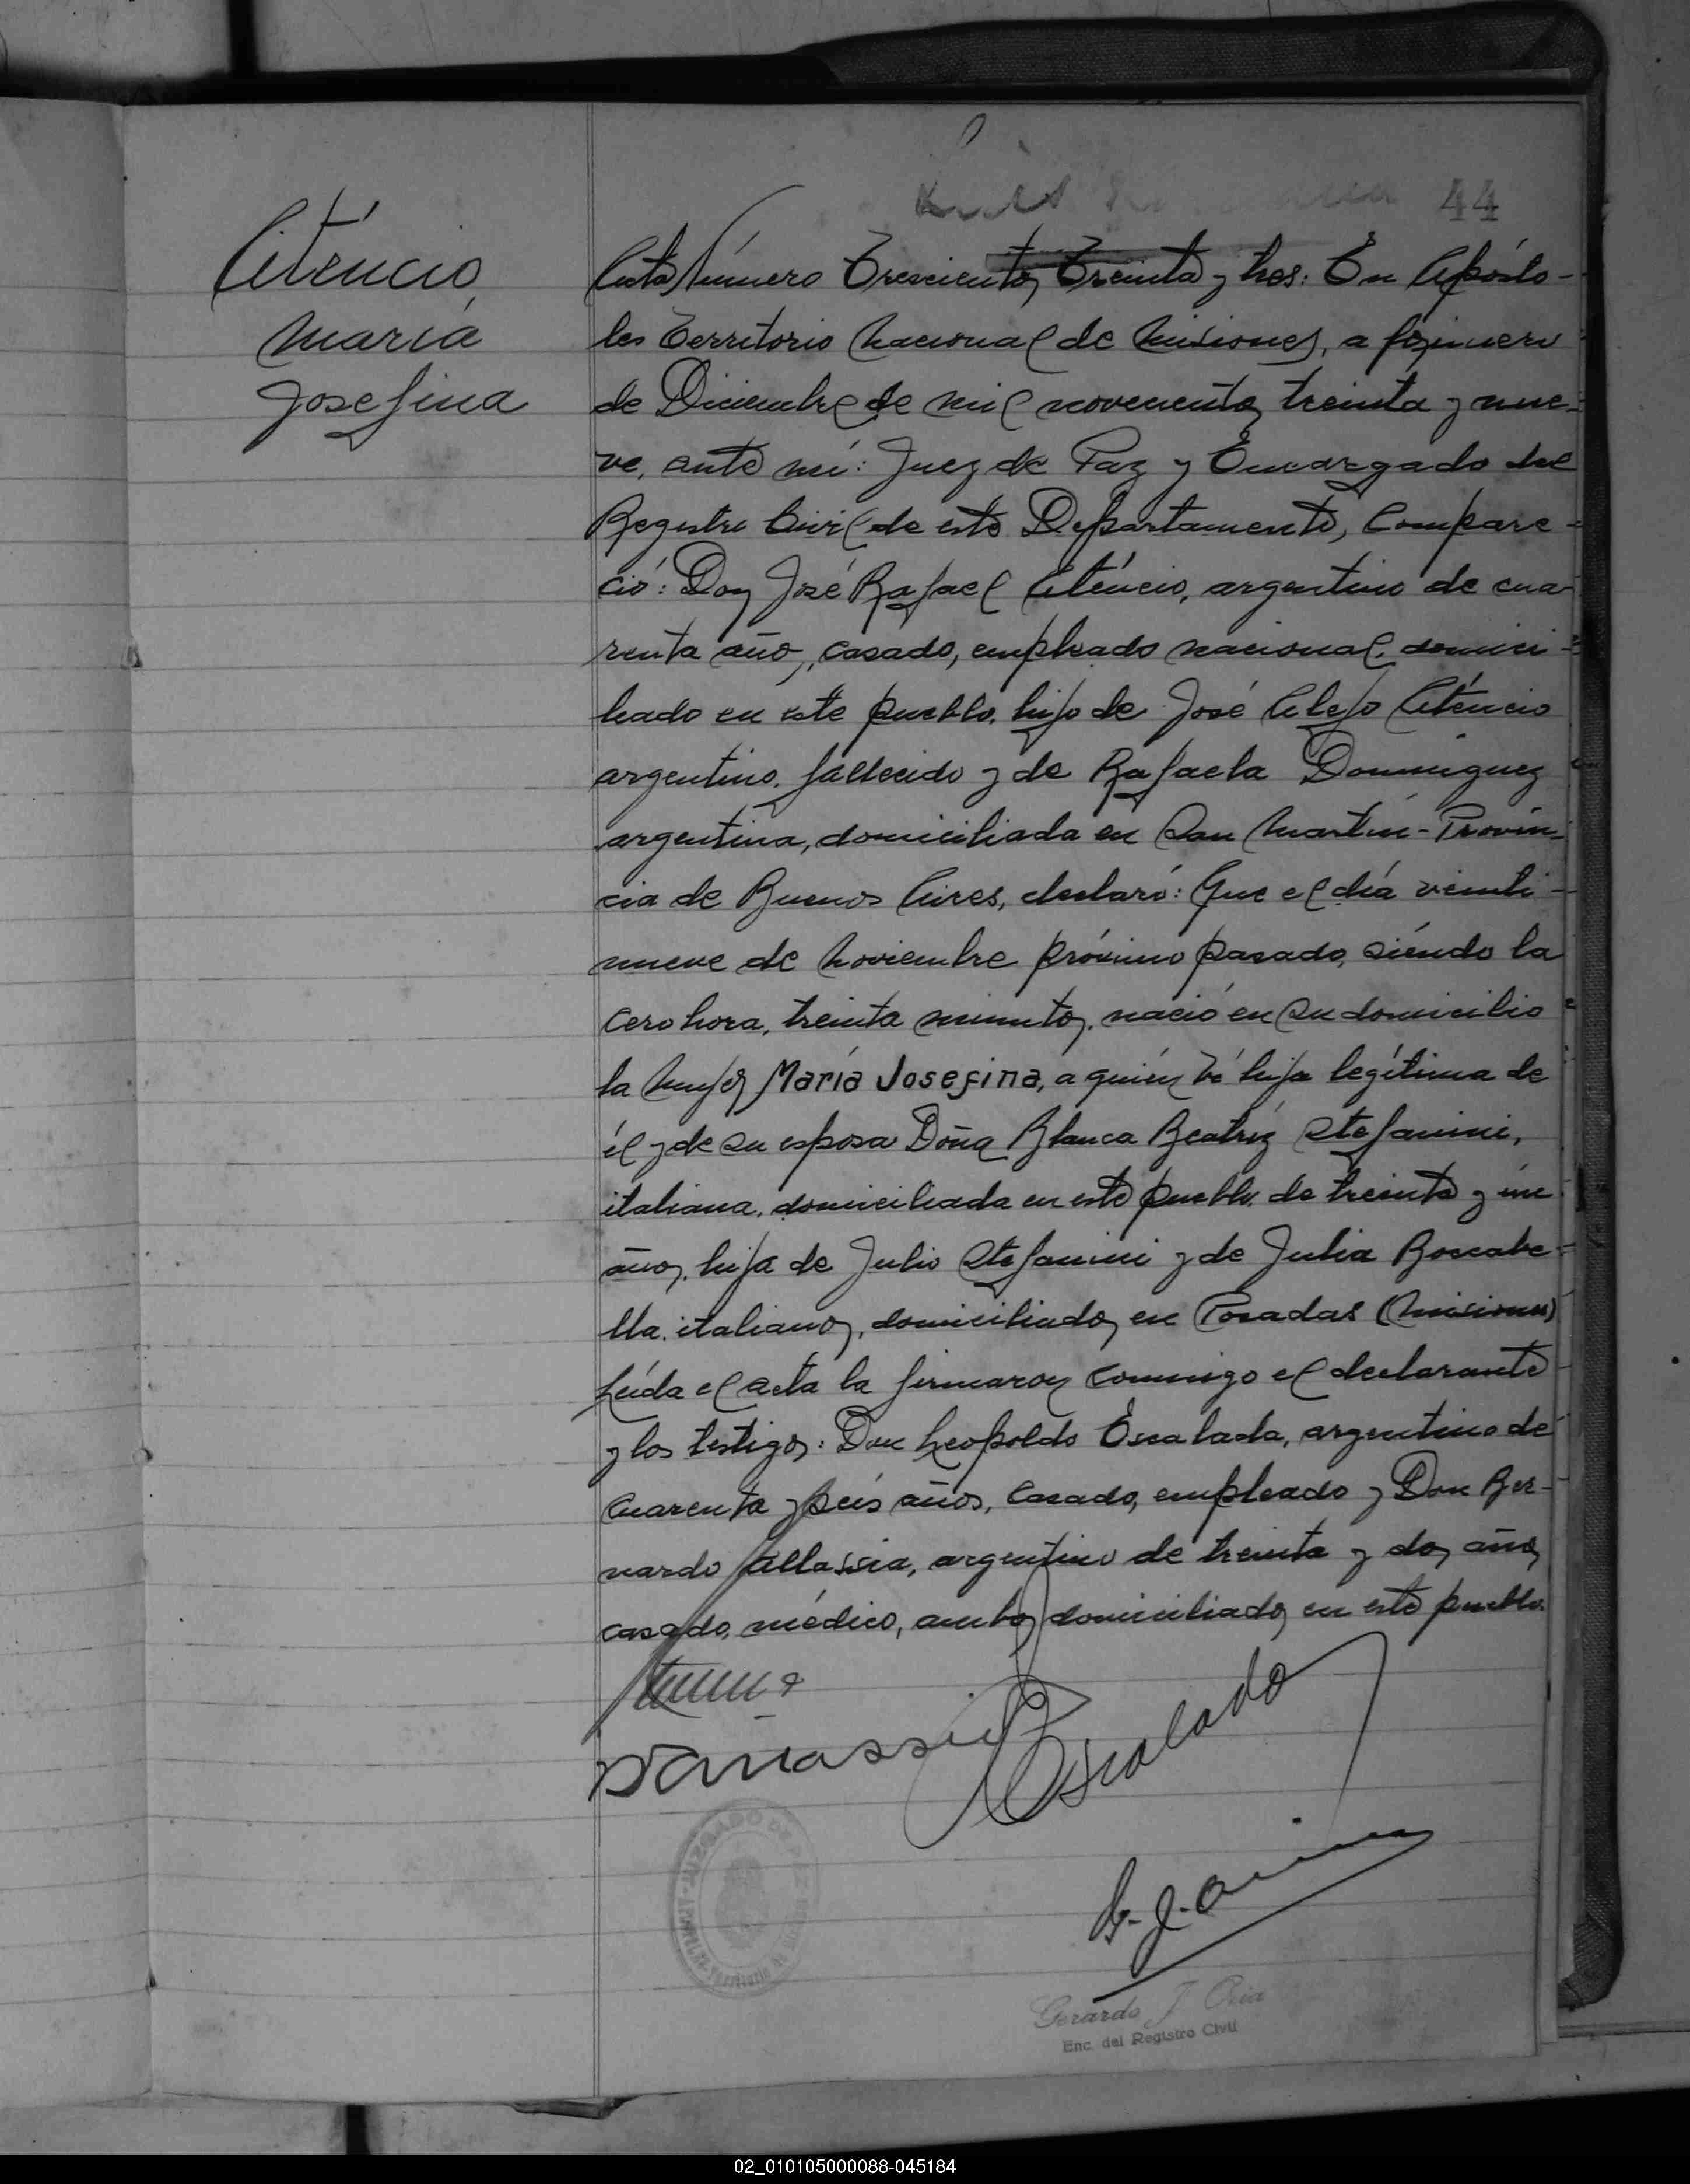 44
Aténcio,
María
Josefina
Acta Número Trescientos Treinta y tres: En Apósto-
les Territorio Nacional de Misiones, a primero
de Diciembre de mil novecientos treinta y nue-
ve, ante mí: Juez de Paz y Encargado del
Registro Civil de este Departamento, Compare-
ció: Don José Rafael Aténcio, argentino de cua-
renta años, casado, empleado nacional, domici-
liado en este pueblo, hijo de José Alejo Aténcio
argentino, fallecido y de Rafaela Dominguez
argentina, domiciliada en San Martín - Provin-
cia de Buenos Aires, declaró: Que el día veinti-
nueve de Noviembre próximo pasado, siéndo la
cero hora, treinta minutos, nació en su domicilio
la mujer María Josefina, a quién vé hija legítima de
él y de su esposa Doña Blanca Beatríz Stefanini,
italiana, domiciliada en este pueblo, de treinta y un
años, hija de Julio Stefanini y de Julia Boccabe-
lla, italianos, domiciliados en Posadas (Misiones)
Leída el acta la firmaron conmigo el declarante
y los testigos: Don Leopoldo Escalada, argentino de
cuarenta y seis años, casado, empleado y Don Ber-
nardo Allassia, argentino de treinta y dos años,
casado, médico, ambos domiciliados en este pueblo.
Escalada
JUZGADO DE PAZ
Gerardo J. Oria
Enc. del Registro Civil
02_010105000088-045184